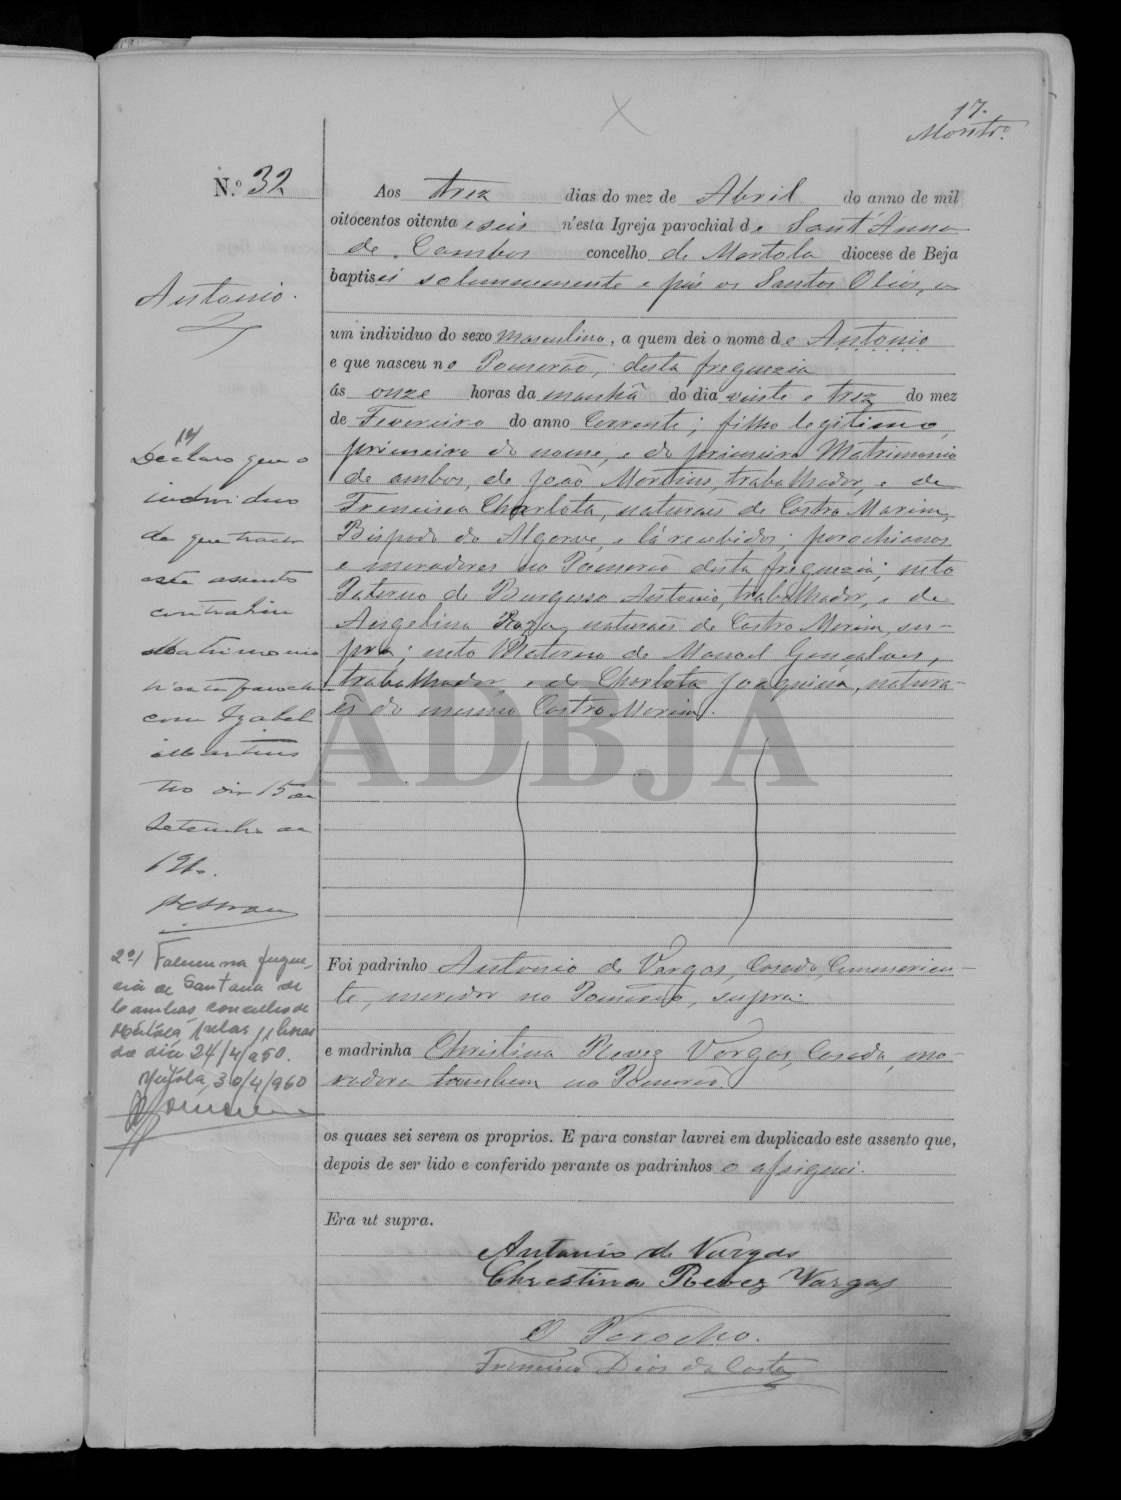 17.
N.º 32
Aos trez dias do mez de Abril do anno de mil
oitocentos oitenta e seis n'esta Igreja parochial de Sant'Anna
de Cambas concelho de Mertola diocese de Beja
baptisei solemnemente e puz os Santos Olios, a
Antonio.
um individuo do sexo masculino, a quem dei o nome de Antonio
e que nasceu no Pomarão, desta freguezia
ás onze horas da manhã do dia vinte e trez do mez
de Fevereiro do anno corrente; filho legitimo,
primeiro do nome, e do primeiro Matrimonio
de ambos, de João Martins, trabalhador, e de
Francisca Charlota, naturaes de Castro Marim,
Bispado do Algarve, e lá recebidos; parochianos
e moradores no Pomarão desta freguezia; neto
Paterno de Burgesso Antonio, trabalhador, e de
Angelina Roza, naturaes de Castro Marim, su-
pra; neto Materno de Manoel Gonçalves,
trabalhador e de Charlota Joaquina, natura-
es do mesmo Castro Marim.
1º/
Declaro que o
individuo
de que tracta
este assento
contrahiu
Matrimonio
n'esta paroch
com Izabel
Martins
no dia 15 de
Setembro de
191
2º/ Faleceu na fregue-
sia de Santana de
Cambas, concelho de
Mértola, pelas 11 horas
do dia 24/4/950.
Mértola, 30/4/960
ADBJA
Foi padrinho Antonio de Vargas, Casado, Commercian-
te, morador no Pomarão, supra.
e madrinha Christina Revez Vargas, Casada, mo-
radora tambem no Pomarão.
os quaes sei serem os proprios. E para constar lavrei em duplicado este assento que,
depois de ser lido e conferido perante os padrinhos o assignei.
Era ut supra.
Antonio de Vargas
Chrestina Revez Vargas
O Parocho.
Francisco Dias da Costa